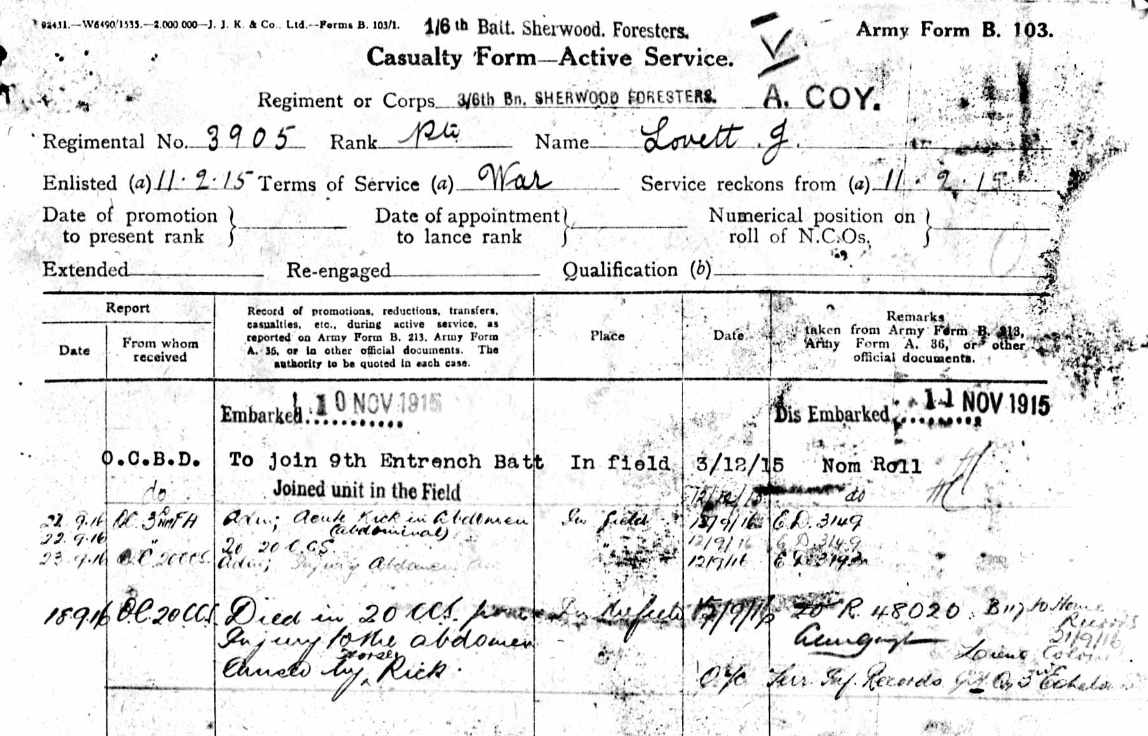 92431.—W6490/1535.—2,000,000—J. J. K. & Co., Ltd.—Forms B. 103/1.
1/6th Batt. Sherwood. Foresters.
Army Form B. 103.
Casualty Form—Active Service.
Regiment or Corps 3/6th Bn. SHERWOOD FORESTERS. A. COY.
Regimental No. 3905 Rank Pte Name Lovett . J.
Enlisted (a) 11 · 2 · 15 Terms of Service (a) War Service reckons from (a) 11 · 2 · 15
Date of promotion to present rank
Date of appointment to lance rank
Numerical position on roll of N.C.Os.
Extended Re-engaged Qualification (b)
Report
Date
From whom received
Record of promotions, reductions, transfers,
casualties, etc., during active service, as
reported on Army Form B. 213, Army Form
A. 36, or in other official documents. The
authority to be quoted in each case.
Place
Date
Remarks
taken from Army Form B. 213,
Army Form A. 36, or other
official documents.
Embarked 10 NOV 1915 Dis Embarked 11 NOV 1915
O.C.B.D. To join 9th Entrench Batt In field 3/12/15 Nom Roll
do Joined unit in the Field do
22.9.16 Adm; Acute Kick in Abdomen In field E.D. 3149
(abdominal)
22.9.16 20 C.C.S. 12/9/16 E.D. 3149
23.9.16 O.C. 20 CCS. Adm; Injury Abdomen
18 9 16 O.C. 20 CCS. Died in 20 CCS. from R. 48020
Injury to the abdomen
Caused by Horse Kick. Records 3rd Echelon
21/9/16